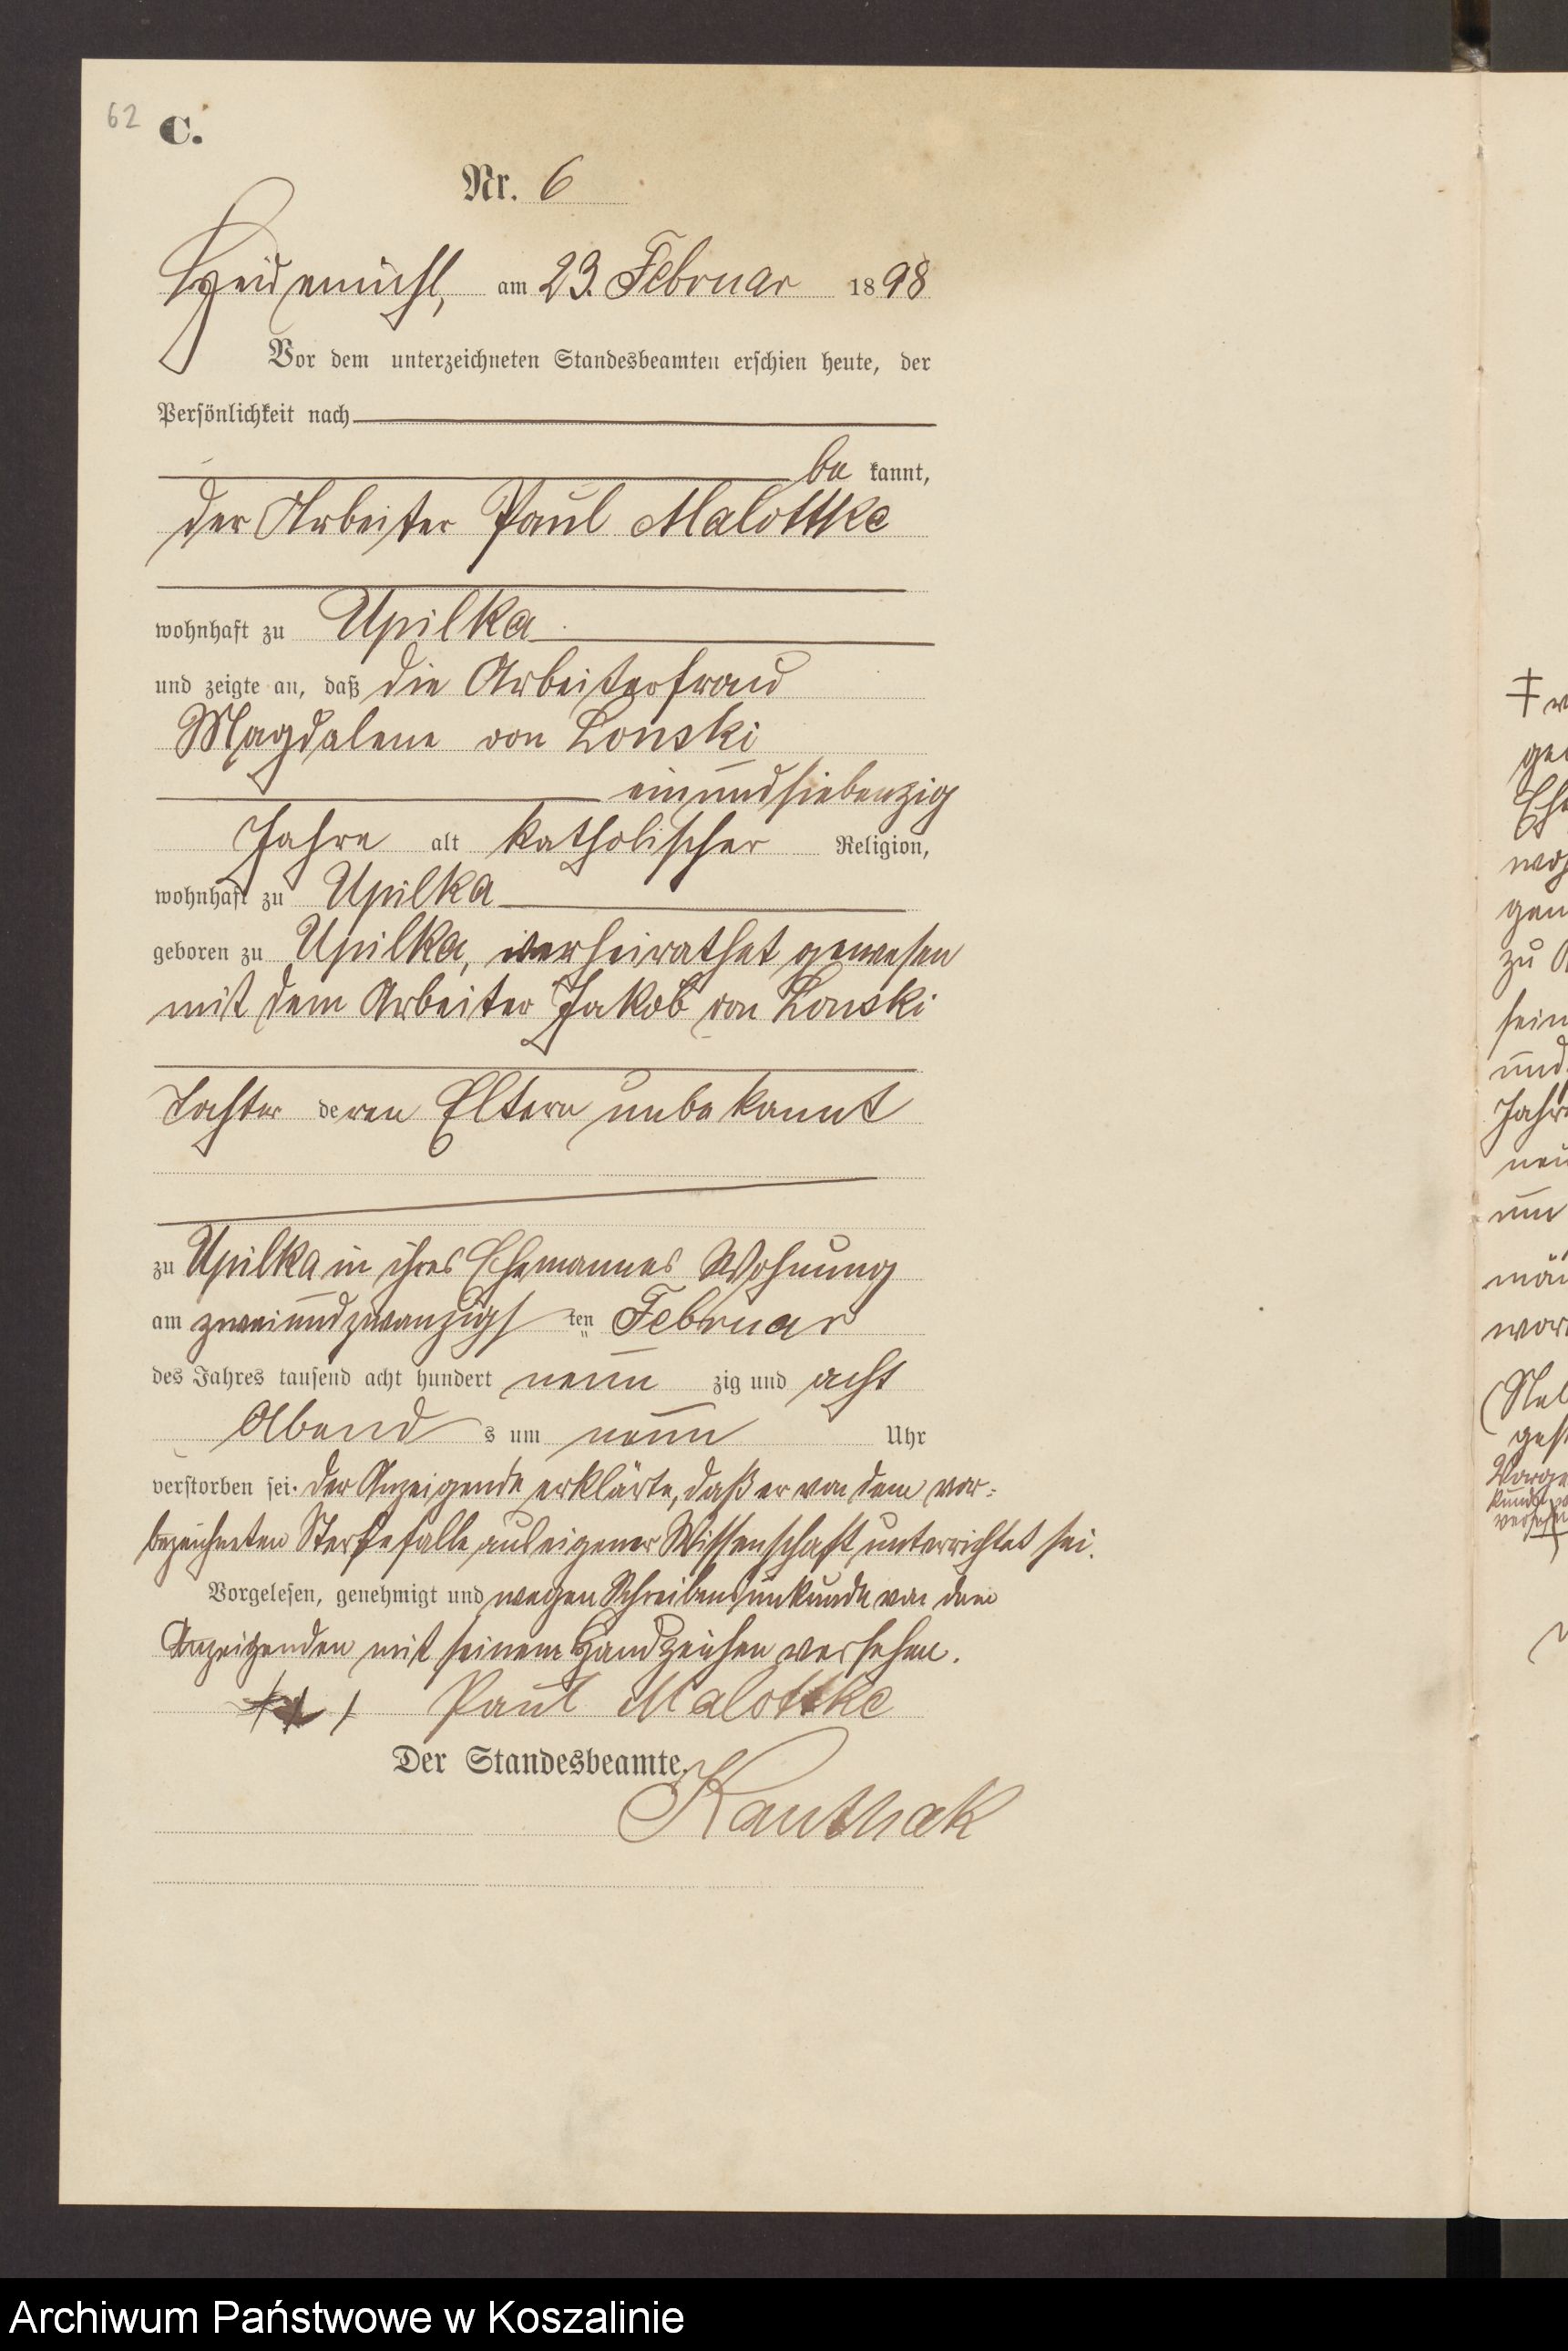 62
C.
Nr. 6
Heidemühl, am 23. Februar 1898
Vor dem unterzeichneten Standesbeamten erschien heute, der
Persönlichkeit nach
be kannt,
der Arbeiter Paul Malottke
wohnhaft zu Upilka
und zeigte an, daß die Arbeiterfrau
Magdalene von Lonski
einundsiebenzig
Jahre alt katholischer Religion,
wohnhaft zu Upilka
geboren zu Upilka, verheirathet gewesen
mit dem Arbeiter Jakob von Lonski
Tochter deren Eltern unbekannt
zu Upilka in ihres Ehemannes Wohnung
am zweiundzwanzigs ten Februar
des Jahres tausend acht hundert neun zig und acht
Abend s um neun Uhr
verstorben sei. Der Anzeigende erklärte, daß er von dem vor-
bezeichneten Sterbefalle aus eigener Wissenschaft unterrichtet sei.
Vorgelesen, genehmigt und wegen Schreibensunkunde von dem
Anzeigenden mit seinem Handzeichen versehen.
Paul Malottke
Der Standesbeamte.
Kauthak
Jahre
zu
und
Archiwum Państwowe w Koszalinie